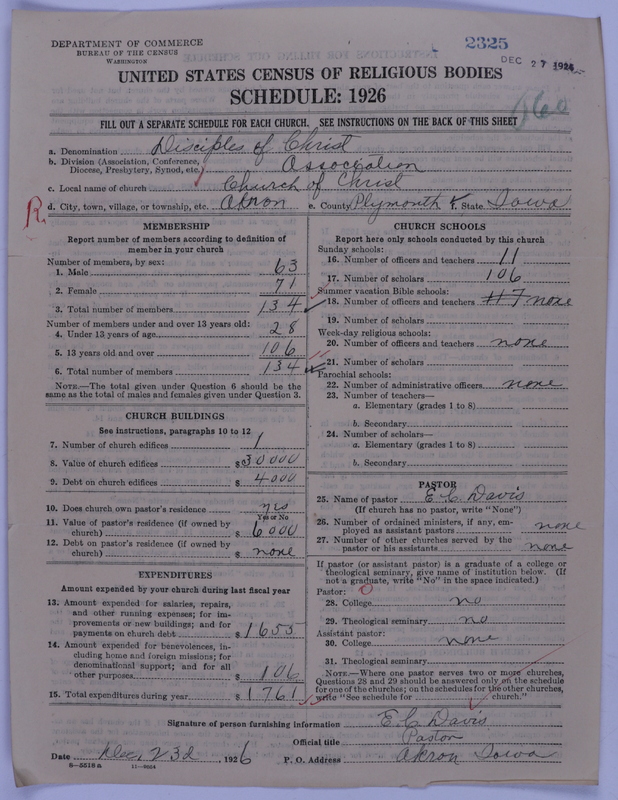 DEPARTMENT OF COMMERCE
BUREAU OF THE CENSUS
WASHINGTON
2325
DEC 27 1926
UNITED STATES CENSUS OF RELIGIOUS BODIES
SCHEDULE: 1926
160
FILL OUT A SEPARATE SCHEDULE FOR EACH CHURCH. SEE INSTRUCTIONS ON THE BACK OF THIS SHEET
a. Denomination Disciples of Christ
b. Division (Association, Conference, Diocese, Presbytery, Synod, etc.) Association
c. Local name of church Church of Christ
R
d. City, town, village, or township, etc. Akron e. County Plymouth f. State Iowa
MEMBERSHIP
Report number of members according to definition of
member in your church
Number of members, by sex:
1. Male 63
2. Female 71
3. Total number of members 134
Number of members under and over 13 years old:
4. Under 13 years of age 28
5. 13 years old and over 106
6. Total number of members 134
NOTE.—The total given under Question 6 should be the
same as the total of males and females given under Question 3.
CHURCH BUILDINGS
See instructions, paragraphs 10 to 12
7. Number of church edifices 1
8. Value of church edifices $30000
9. Debt on church edifices $4000
10. Does church own pastor's residence yes
Yes or No
11. Value of pastor's residence (if owned by
church) $6000
12. Debt on pastor's residence (if owned by
church) $none
EXPENDITURES
Amount expended by your church during last fiscal year
13. Amount expended for salaries, repairs,
and other running expenses; for im-
provements or new buildings; and for
payments on church debt $1655
14. Amount expended for benevolences, in-
cluding home and foreign missions; for
denominational support; and for all
other purposes $106
15. Total expenditures during year $1761
CHURCH SCHOOLS
Report here only schools conducted by this church
Sunday schools:
16. Number of officers and teachers 11
17. Number of scholars 106
Summer vacation Bible schools:
18. Number of officers and teachers none
19. Number of scholars
Week-day religious schools:
20. Number of officers and teachers none
21. Number of scholars
Parochial schools:
22. Number of administrative officers none
23. Number of teachers—
a. Elementary (grades 1 to 8)
b. Secondary
24. Number of scholars—
a. Elementary (grades 1 to 8)
b. Secondary
PASTOR
25. Name of pastor E C Davis
(If church has no pastor, write "None")
26. Number of ordained ministers, if any, em-
ployed as assistant pastors none
27. Number of other churches served by the
pastor or his assistants none
If pastor (or assistant pastor) is a graduate of a college or
theological seminary, give name of institution below. (If
not a graduate, write "No" in the space indicated.)
Pastor: 0
28. College no
29. Theological seminary no
Assistant pastor:
30. College none
31. Theological seminary
NOTE.—Where one pastor serves two or more churches,
Questions 28 and 29 should be answered only on the schedule
for one of the churches; on the schedules for the other churches,
write "See schedule for church."
Signature of person furnishing information E C Davis
Official title Pastor
Date Dec, 23d 1926 P. O. Address Akron Iowa
8—5518a 11—9864